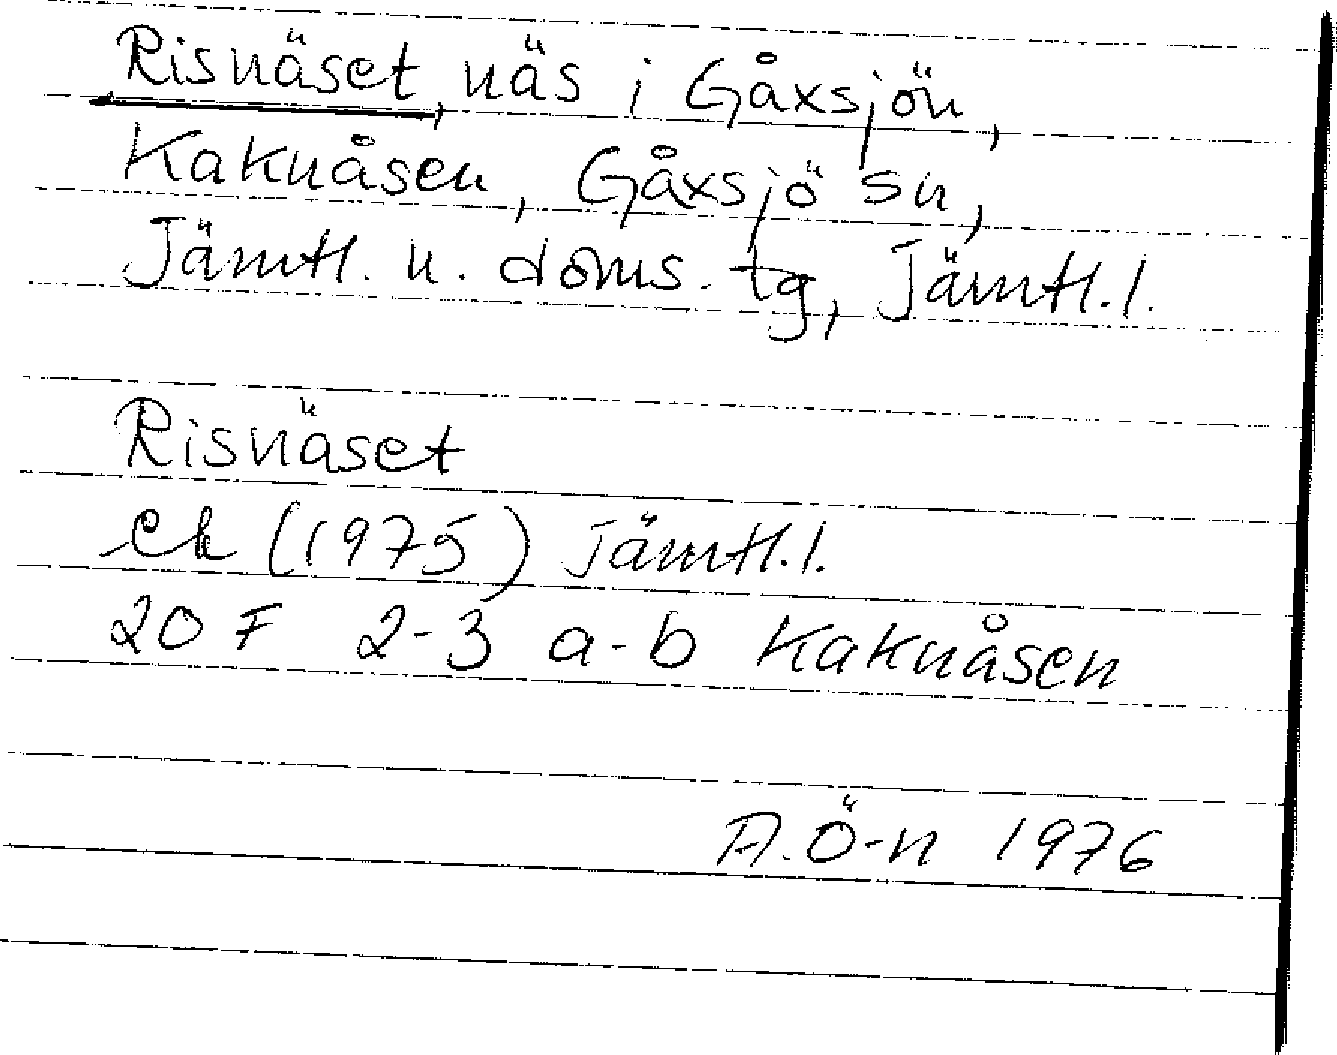 Risnäset, näs i Gåxsjön,
Kaknåsen, Gåxsjö sn,
Jämtl. n. doms. tg, Jämtl. l.
Risnäset
ek (1975) Jämtl. l.
20 F 2-3 a-b Kaknåsen
A. Ö-n 1976